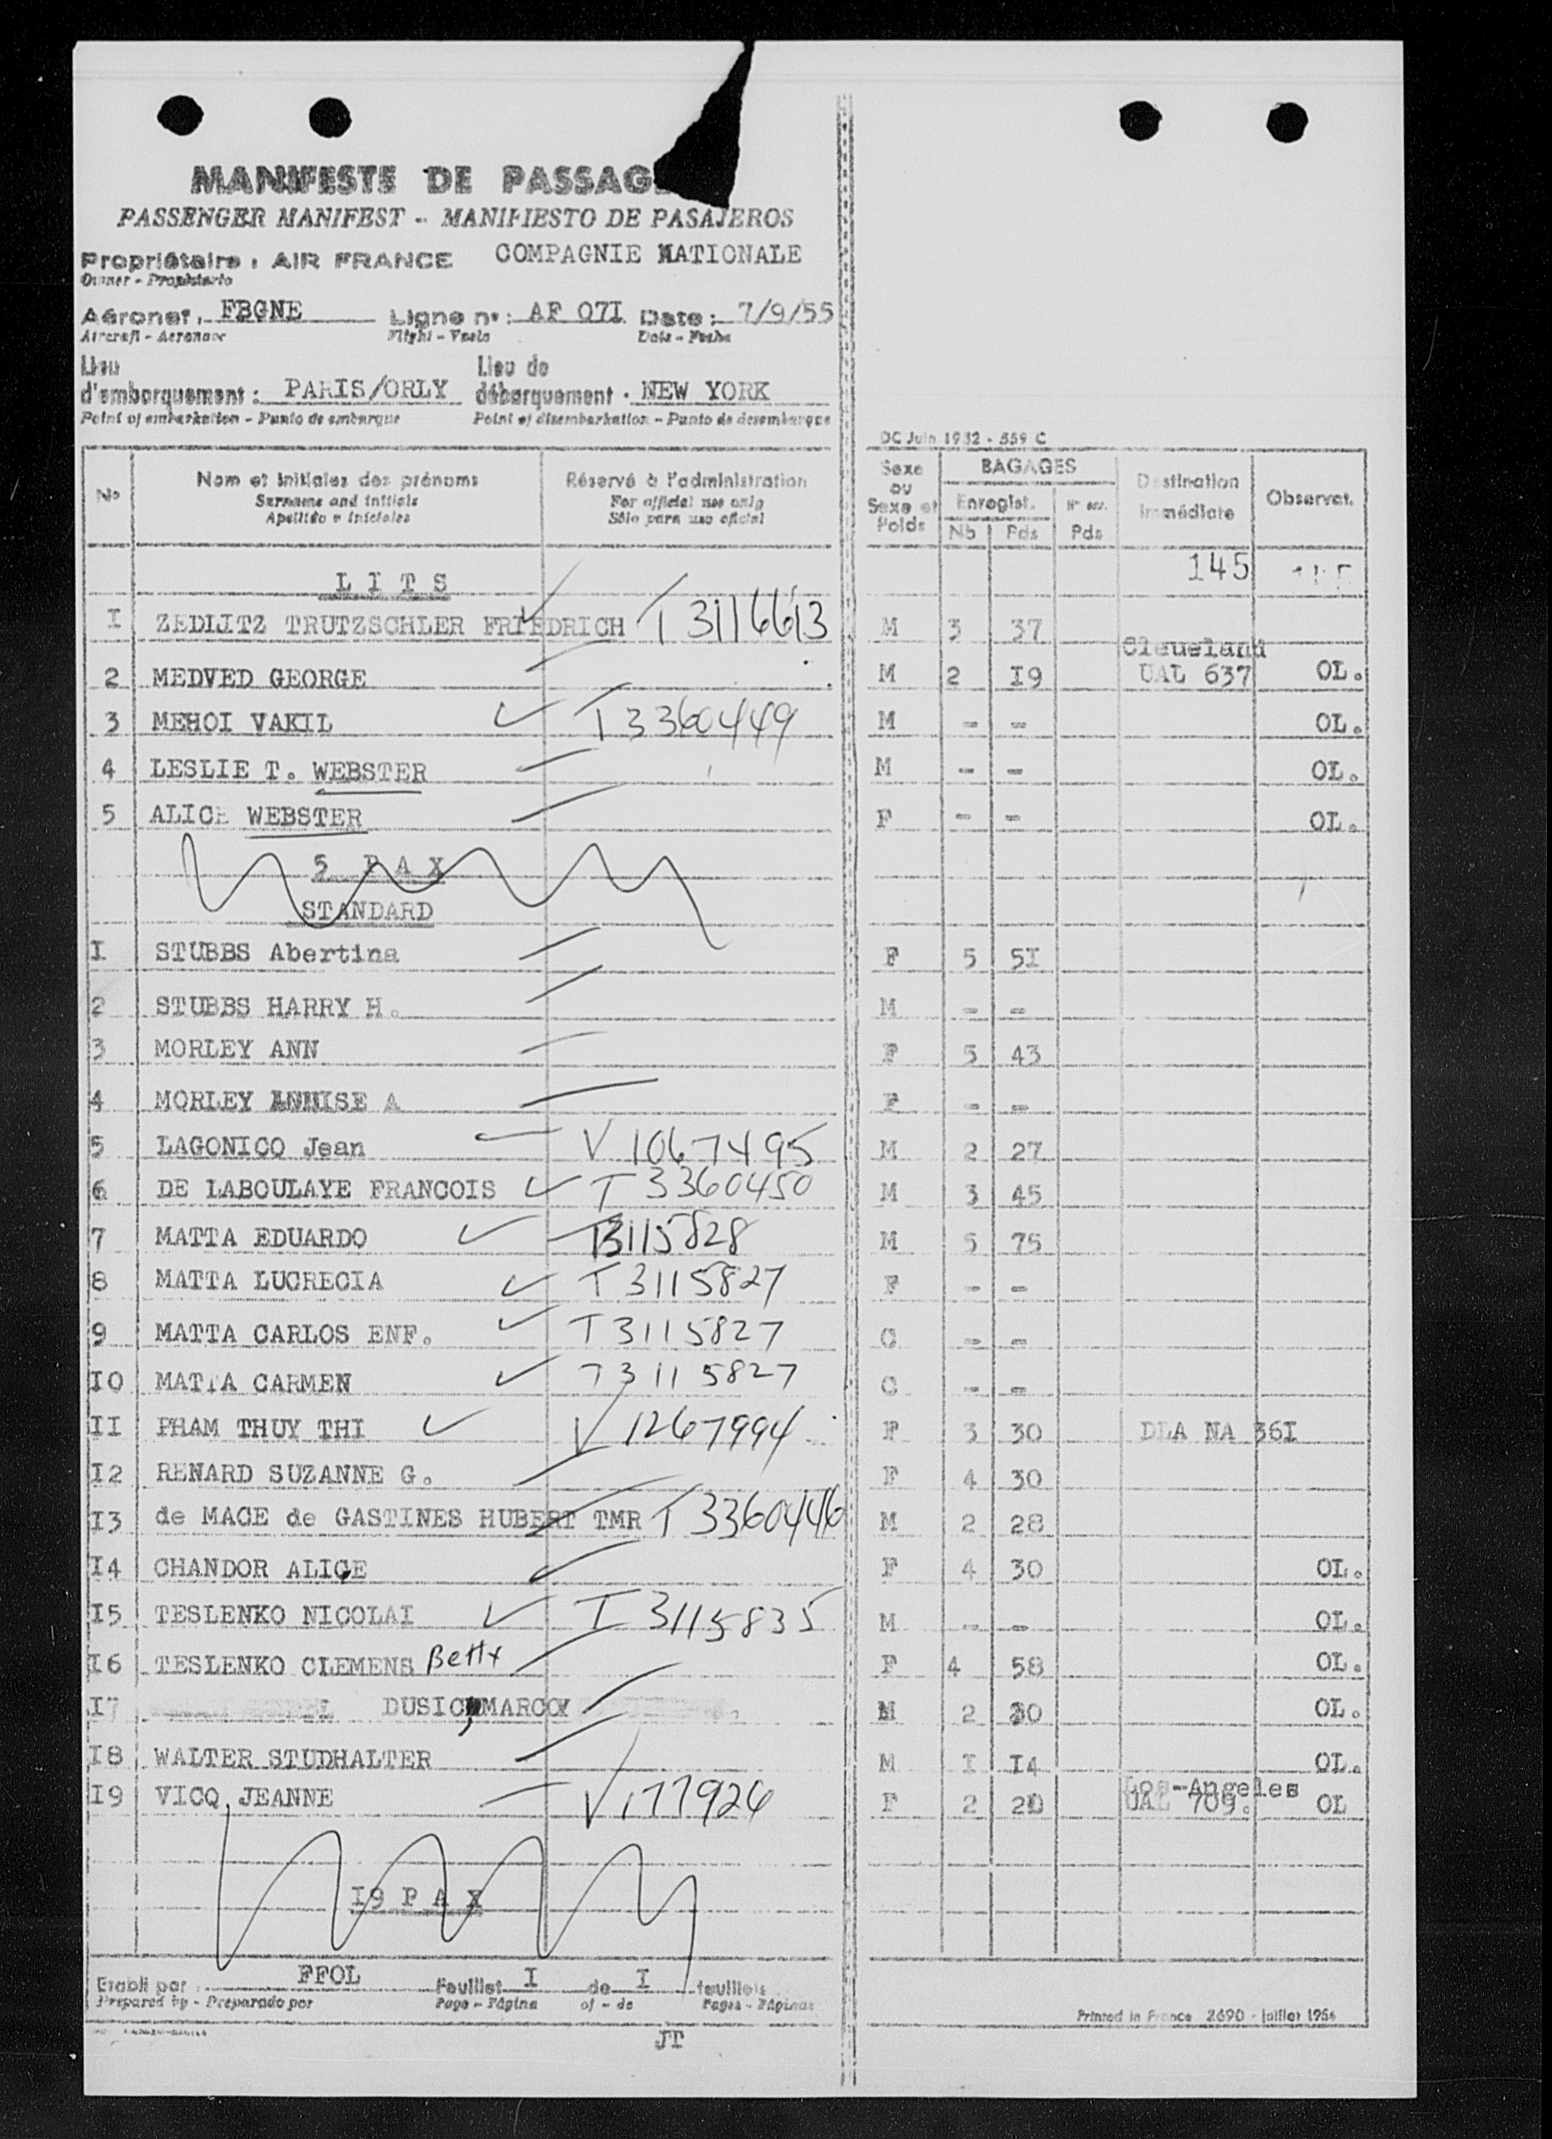 MANIFESTE DE PASSAG
PASSENGER MANIFEST - MANIFIESTO DE PASAJEROS
Propriétaire : AIR FRANCE COMPAGNIE NATIONALE
Owner - Propietario
Aéronef : FBGNE Ligne n° : AF 07I Date : 7/9/55
Aircraft - Aeronave Flight - Vuelo Date - Fecha
Lieu d'embarquement : PARIS/ORLY Lieu de débarquement : NEW YORK
Point of embarkation - Punto de embarque Point of disembarkation - Punto de desembarque
DC Juin 1952 - 559 C
No Nom et initiales des prénoms Réservé à l'administration Sexe ou Sexe et Poids BAGAGES Destination immédiate Observat.
Surname and initials For official use only Enregist.
Apellido e iniciales Sólo para uso oficial Nb Pds Pds
145
L I T S
I ZEDLITZ TRUTZSCHLER FRIEDRICH T 3116613 M 3 37
2 MEDVED GEORGE M 2 I9 Cleveland UAL 637 OL.
3 MEHOI VAKIL T 3360449 M - - OL.
4 LESLIE T. WEBSTER M - - OL.
5 ALICE WEBSTER F - - OL.
5 P A X
STANDARD
I STUBBS Abertina F 5 5I
2 STUBBS HARRY H. M - -
3 MORLEY ANN F 5 43
4 MORLEY ANNISE A F - -
5 LAGONICO Jean V 1067495 M 2 27
6 DE LABOULAYE FRANCOIS T 3360450 M 3 45
7 MATTA EDUARDO T3115828 M 5 75
8 MATTA LUCRECIA T 3115827 F - -
9 MATTA CARLOS ENF. T 3115827 C - -
IO MATTA CARMEN T3115827 C - -
II PHAM THUY THI V 1267994 F 3 30 DLA NA 36I
I2 RENARD SUZANNE G. F 4 30
I3 de MACE de GASTINES HUBERT TMR T 3360446 M 2 28
I4 CHANDOR ALICE F 4 30 OL.
I5 TESLENKO NICOLAI T 3115835 M - - OL.
I6 TESLENKO CLEMENS Betty F 4 58 OL.
I7 DUSIC, MARCO M 2 30 OL.
I8 WALTER STUDHALTER M I I4 OL.
I9 VICQ JEANNE V 177926 F 2 20 Los-Angeles UAL 709. OL
I9 P A X
Etabli par : FFOL Feuillet I de I feuillets
Prepared by - Preparado por Page - Página of - de Pages - Páginas
Printed in France 2690 - juillet 1954
JT